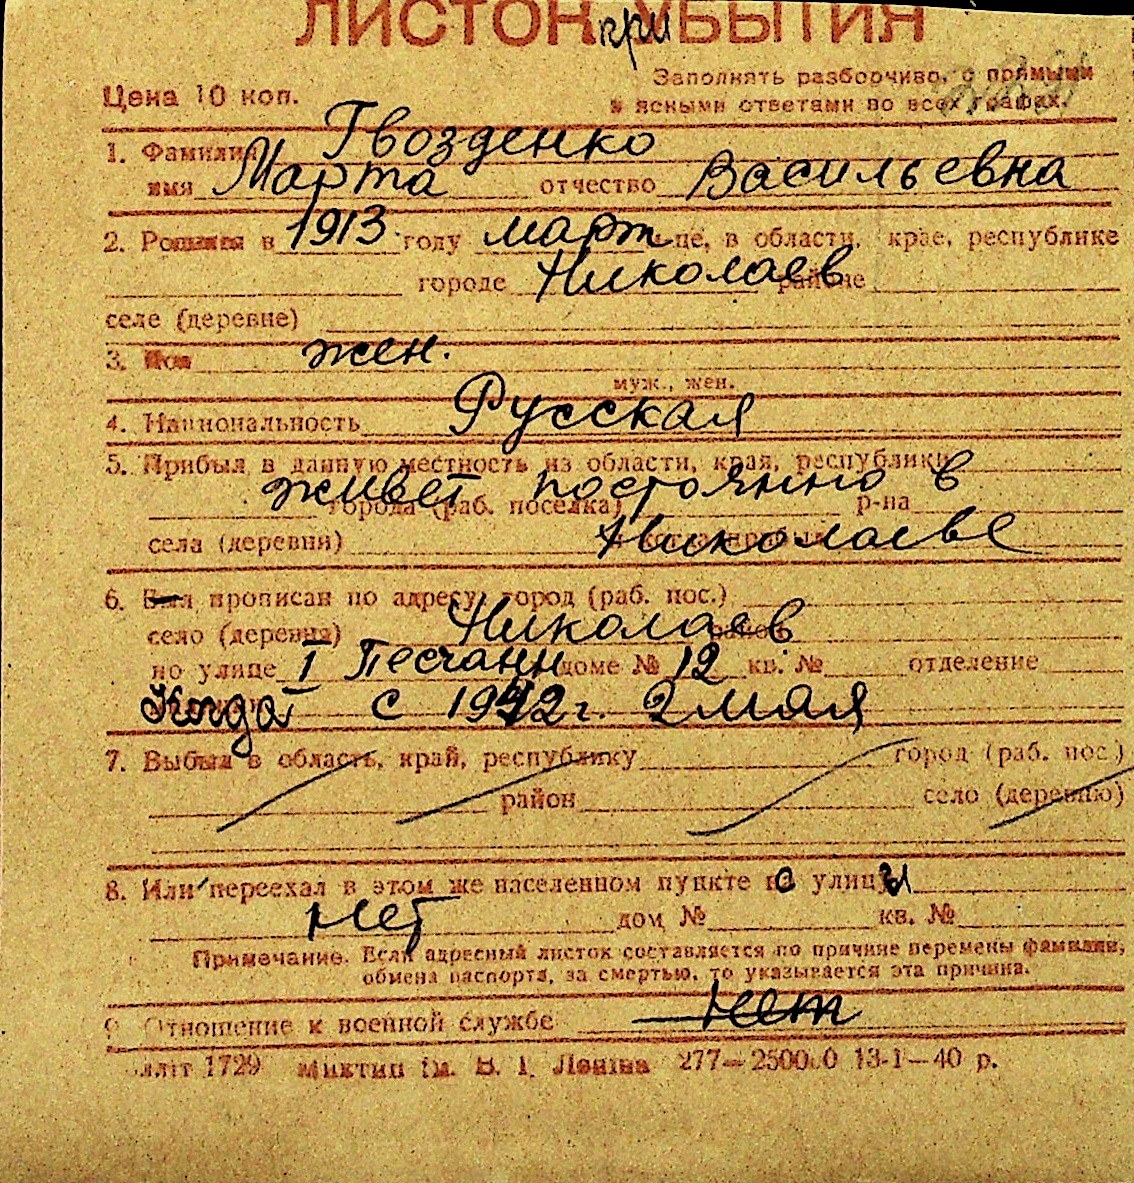 ЛИСТОК при УБЫТИЯ
Цена 10 коп.
Заполнять разборчиво, с прямыми
и ясными ответами во всех графах.
1. Фамилия Гвозденко
имя Марта отчество Васильевна
2. Родился в 1913 году март м-це, в области, крае, республике
городе Николаев районе
селе (деревне)
3. Пол жен.
муж., жен.
4. Национальность Русская
5. Прибыл в данную местность из области, края, республики
живет постоянно в
города (раб. поселка) р-на
села (деревни) Николаеве
6. Был прописан по адресу: город (раб. пос.)
село (деревня) Николаев район
по улице I Песчанн доме № 12 кв. № отделение
Когда с 1942 г. 2 мая
7. Выбыл в область, край, республику город (раб. пос.)
район село (деревню)
8. Или переехал в этом же населенном пункте на с улицы
Нет дом № кв. №
Примечание. Если адресный листок составляется по причине перемены фамилии,
обмена паспорта, за смертью, то указывается эта причина.
9. Отношение к военной службе нет
лліт 1729 Миктип ім. В. І. Леніна 277—250000 13-1—40 р.